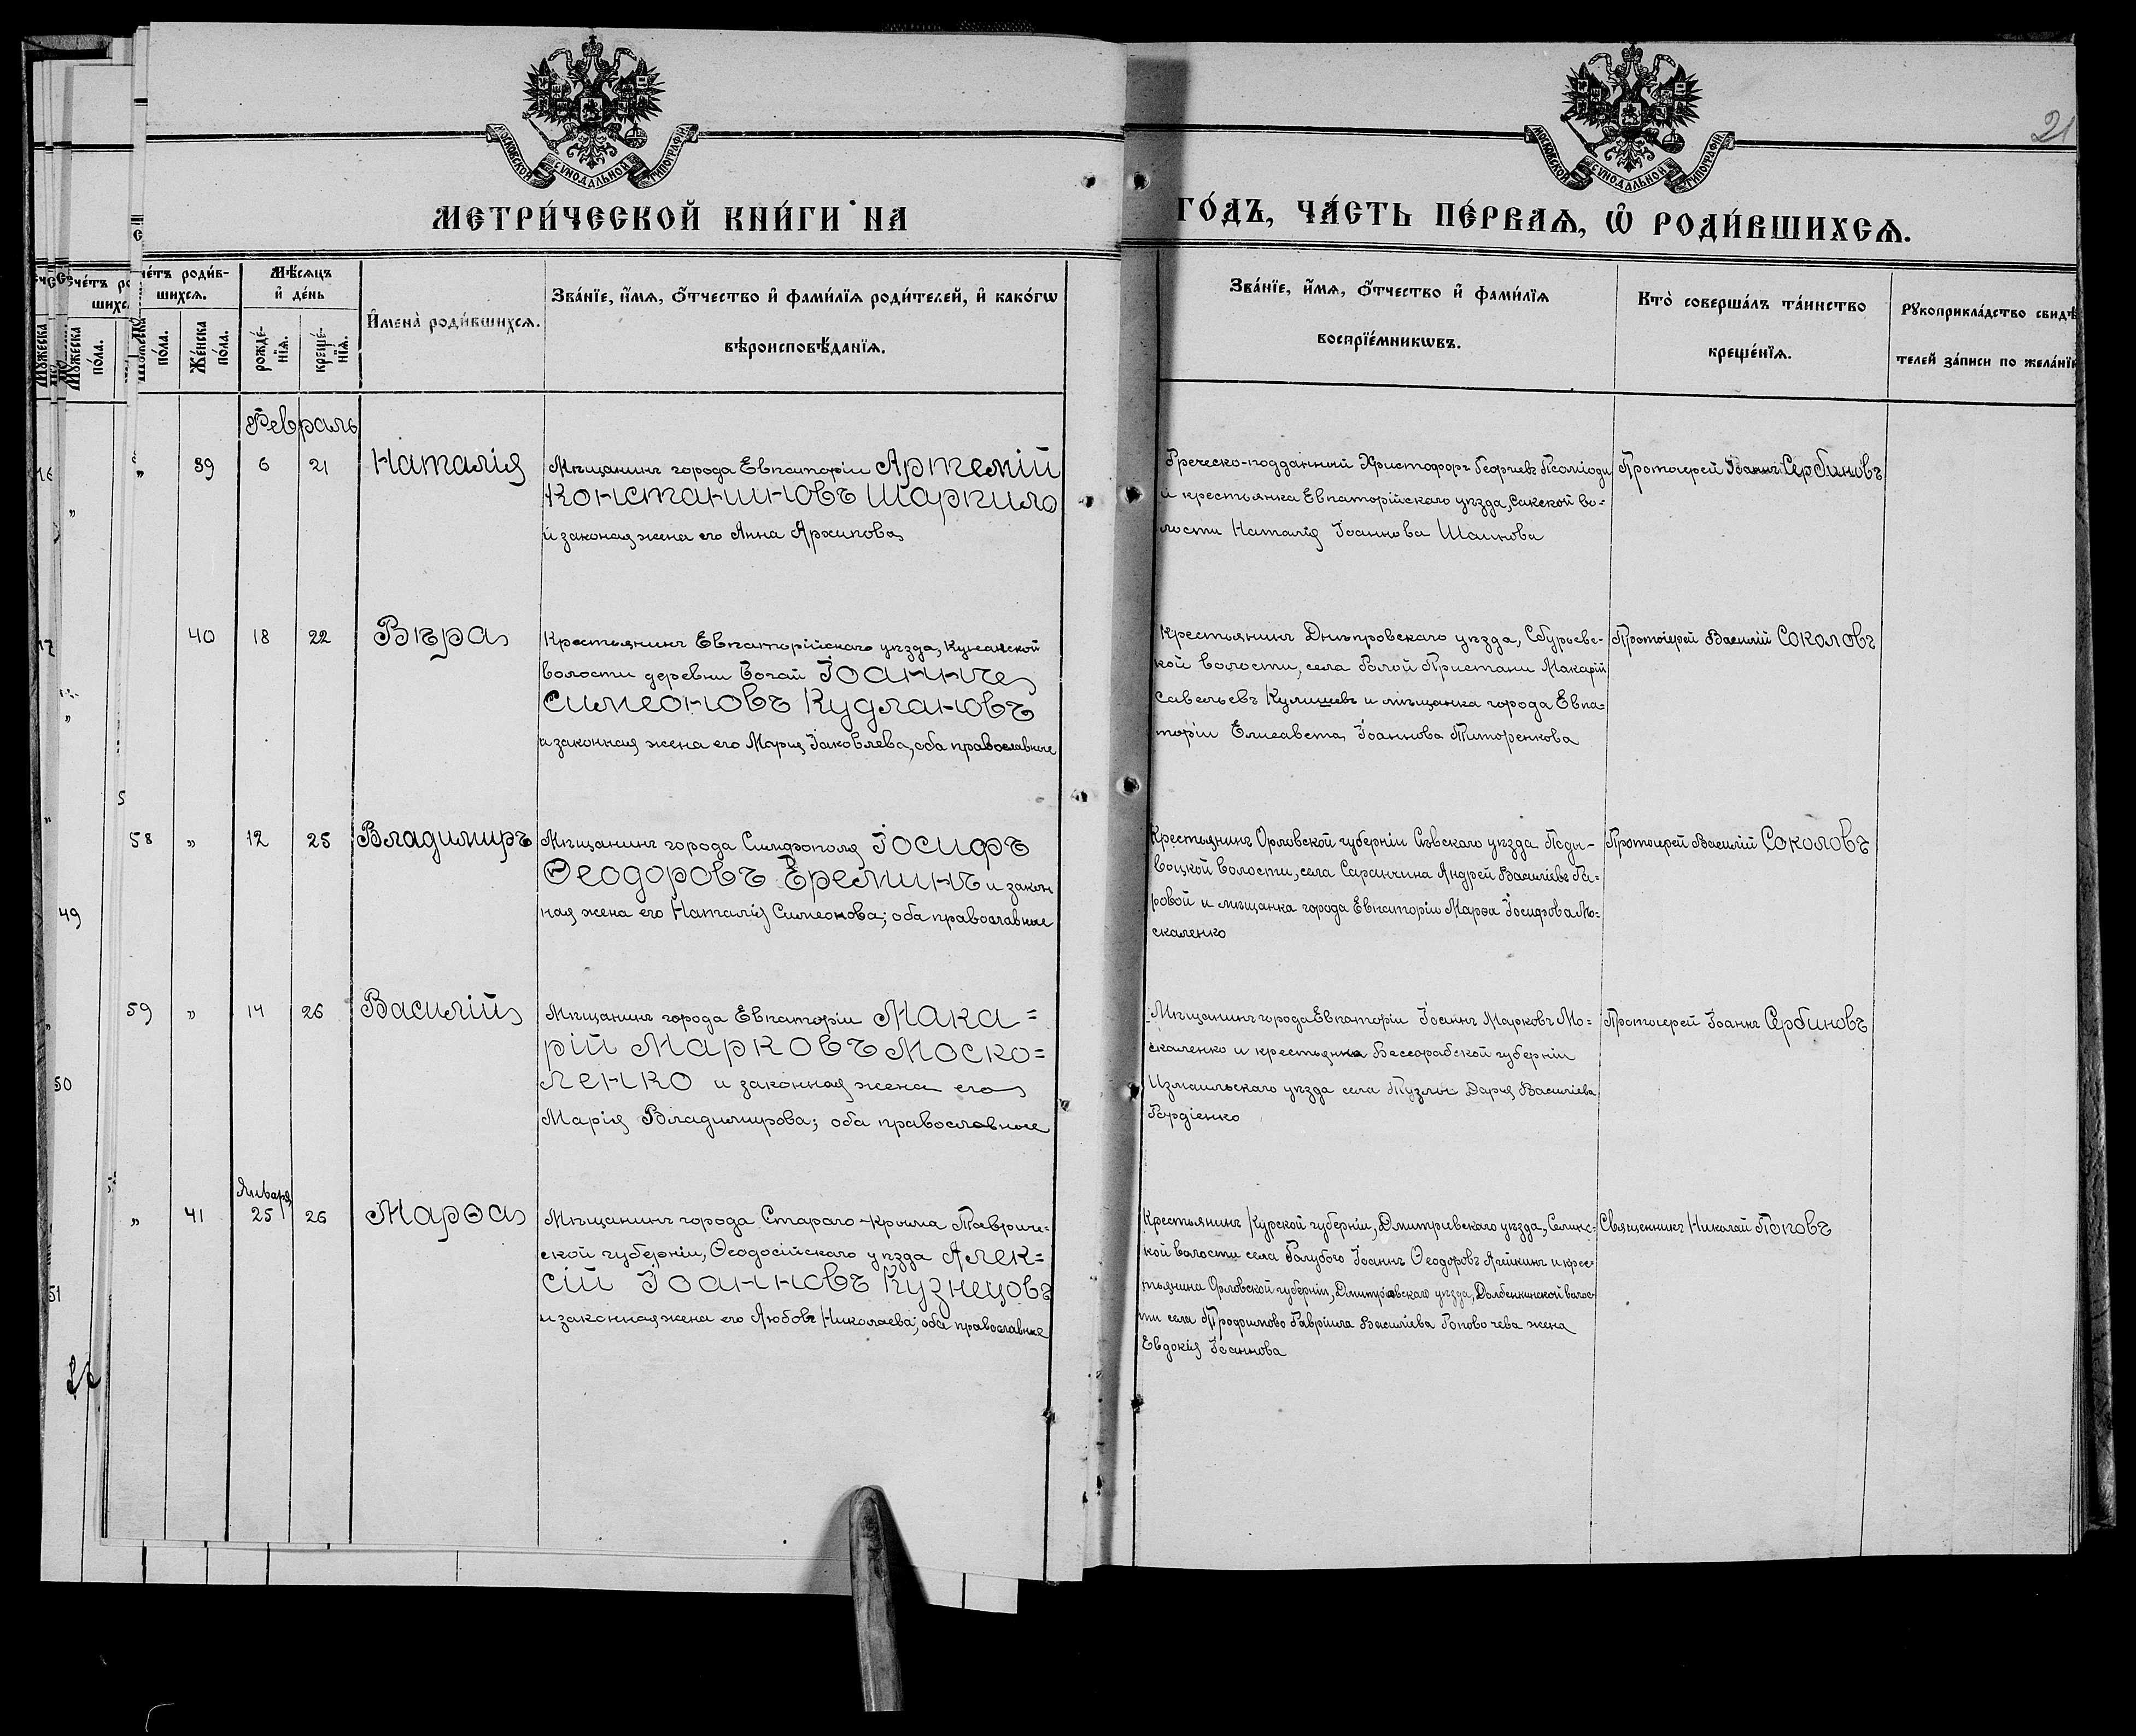 МОСКОВСКОЙ СѴНОДАЛЬНОЙ ТИПОГРАФІИ
МОСКОВСКОЙ СѴНОДАЛЬНОЙ ТИПОГРАФІИ
21
МЕТРИ́ЧЕСКОЙ КНИ́ГИ НА
ГО́ДЪ, ЧА́СТЬ ПЕ́РВАѦ, Ѡ҆ РОДИ́ВШИХСѦ.
че́тъ роди́в-
шихсѧ.
Мѣ́сѧцъ
и҆ де́нь
Мꙋ́жеска
по́ла.
Же́нска
по́ла.
рожде́-
нїѧ.
креще́-
нїѧ.
И҆мена̀ роди́вшихсѧ.
Зва́нїе, и҆́мѧ, ѻ҆́тчество и҆ фами́лїѧ роди́телей, и҆ како́гѡ
вѣроисповѣ́данїѧ.
Зва́нїе, и҆́мѧ, ѻ҆́тчество и҆ фами́лїѧ
воспрїе́мникѡвъ.
Кто̀ соверша́лъ та́инство
креще́нїѧ.
Рꙋкоприкла́дство свидѣ
телей за́писи по жела́нї
Февраль
„ 39 6 21 Наталія
Мѣщанинъ города Евпаторіи Артемій
Константиновъ Шаргило
и законая жена его Анна Архипова
Греческо-подданный Христофоръ Георгіевъ
и крестьянка Евпаторійскаго уѣзда, Сакской во-
лости Наталія Іоаннова Шаинова
Протоіерей Іоаннъ Сербиновъ
40 18 22 Вѣра
Крестьянинъ Евпаторійскаго уѣзда,
волости деревни Богай Іоаннъ
Симеоновъ Кудлановъ
и законная жена его Марія Іаковлева, оба православные
Крестьянинъ Днѣпровскаго уѣзда, Сбурьевс-
кой волости, села Голой Пристани Макарій
Савельевъ Кулишевъ и мѣщанка города Евпа-
торіи Елисавета Іоаннова Титоренкова
Протоіерей Василій Соколовъ
58 „ 12 25 Владимиръ
Мѣщанинъ города Симферополя Іосифъ
Ѳеодоровъ Ереминъ и закон
ная жена его Наталія Симеонова; оба православные
Крестьянинъ Орловской губерніи Сѣвскаго уѣзда Поды-
воцкой волости, села Саранчина Андрей Василіевъ Га=
ровой и мѣщанка города Евпаторіи Марѳа Іосифова Мо=
скаленко
Протоіерей Василій Соколовъ
59 „ 14 26 Василій
Мѣщанинъ города Евпаторіи Мака=
рій Марковъ Моско=
ленко и законная жена его
Марія Владимирова; оба православные
Мѣщанинъ города Евпаторіи Іоаннъ Марковъ Мо=
скаленко и крестьянка Бессарабской губерніи
Измаильскаго уѣзда села Тузлы Дарія Василіева
Гордіенко
Протоіерей Іоаннъ Сербиновъ
Января
„ 41 25 26 Марѳа
Мѣщанинъ города Стараго-Крыма Тавриче-
ской губерніи, Ѳеодосійскаго уѣзда Алек=
сій Іоанновъ Кузнецовъ
и законная жена его Любовь Николаева; оба православные
Крестьянинъ Курской губерніи, Дмитріевскаго уѣзда, Селинс-
кой волости села Голубого Іоаннъ Ѳеодоровъ Агѣйкинъ и крес-
тьянина Орловской губерніи, Дмитровскаго уѣзда, Долбенкинской волос-
ти села Трофимово Гавріила Василіева жена
Евдокія Іоаннова
Священникъ Николай Поповъ
49
50
51